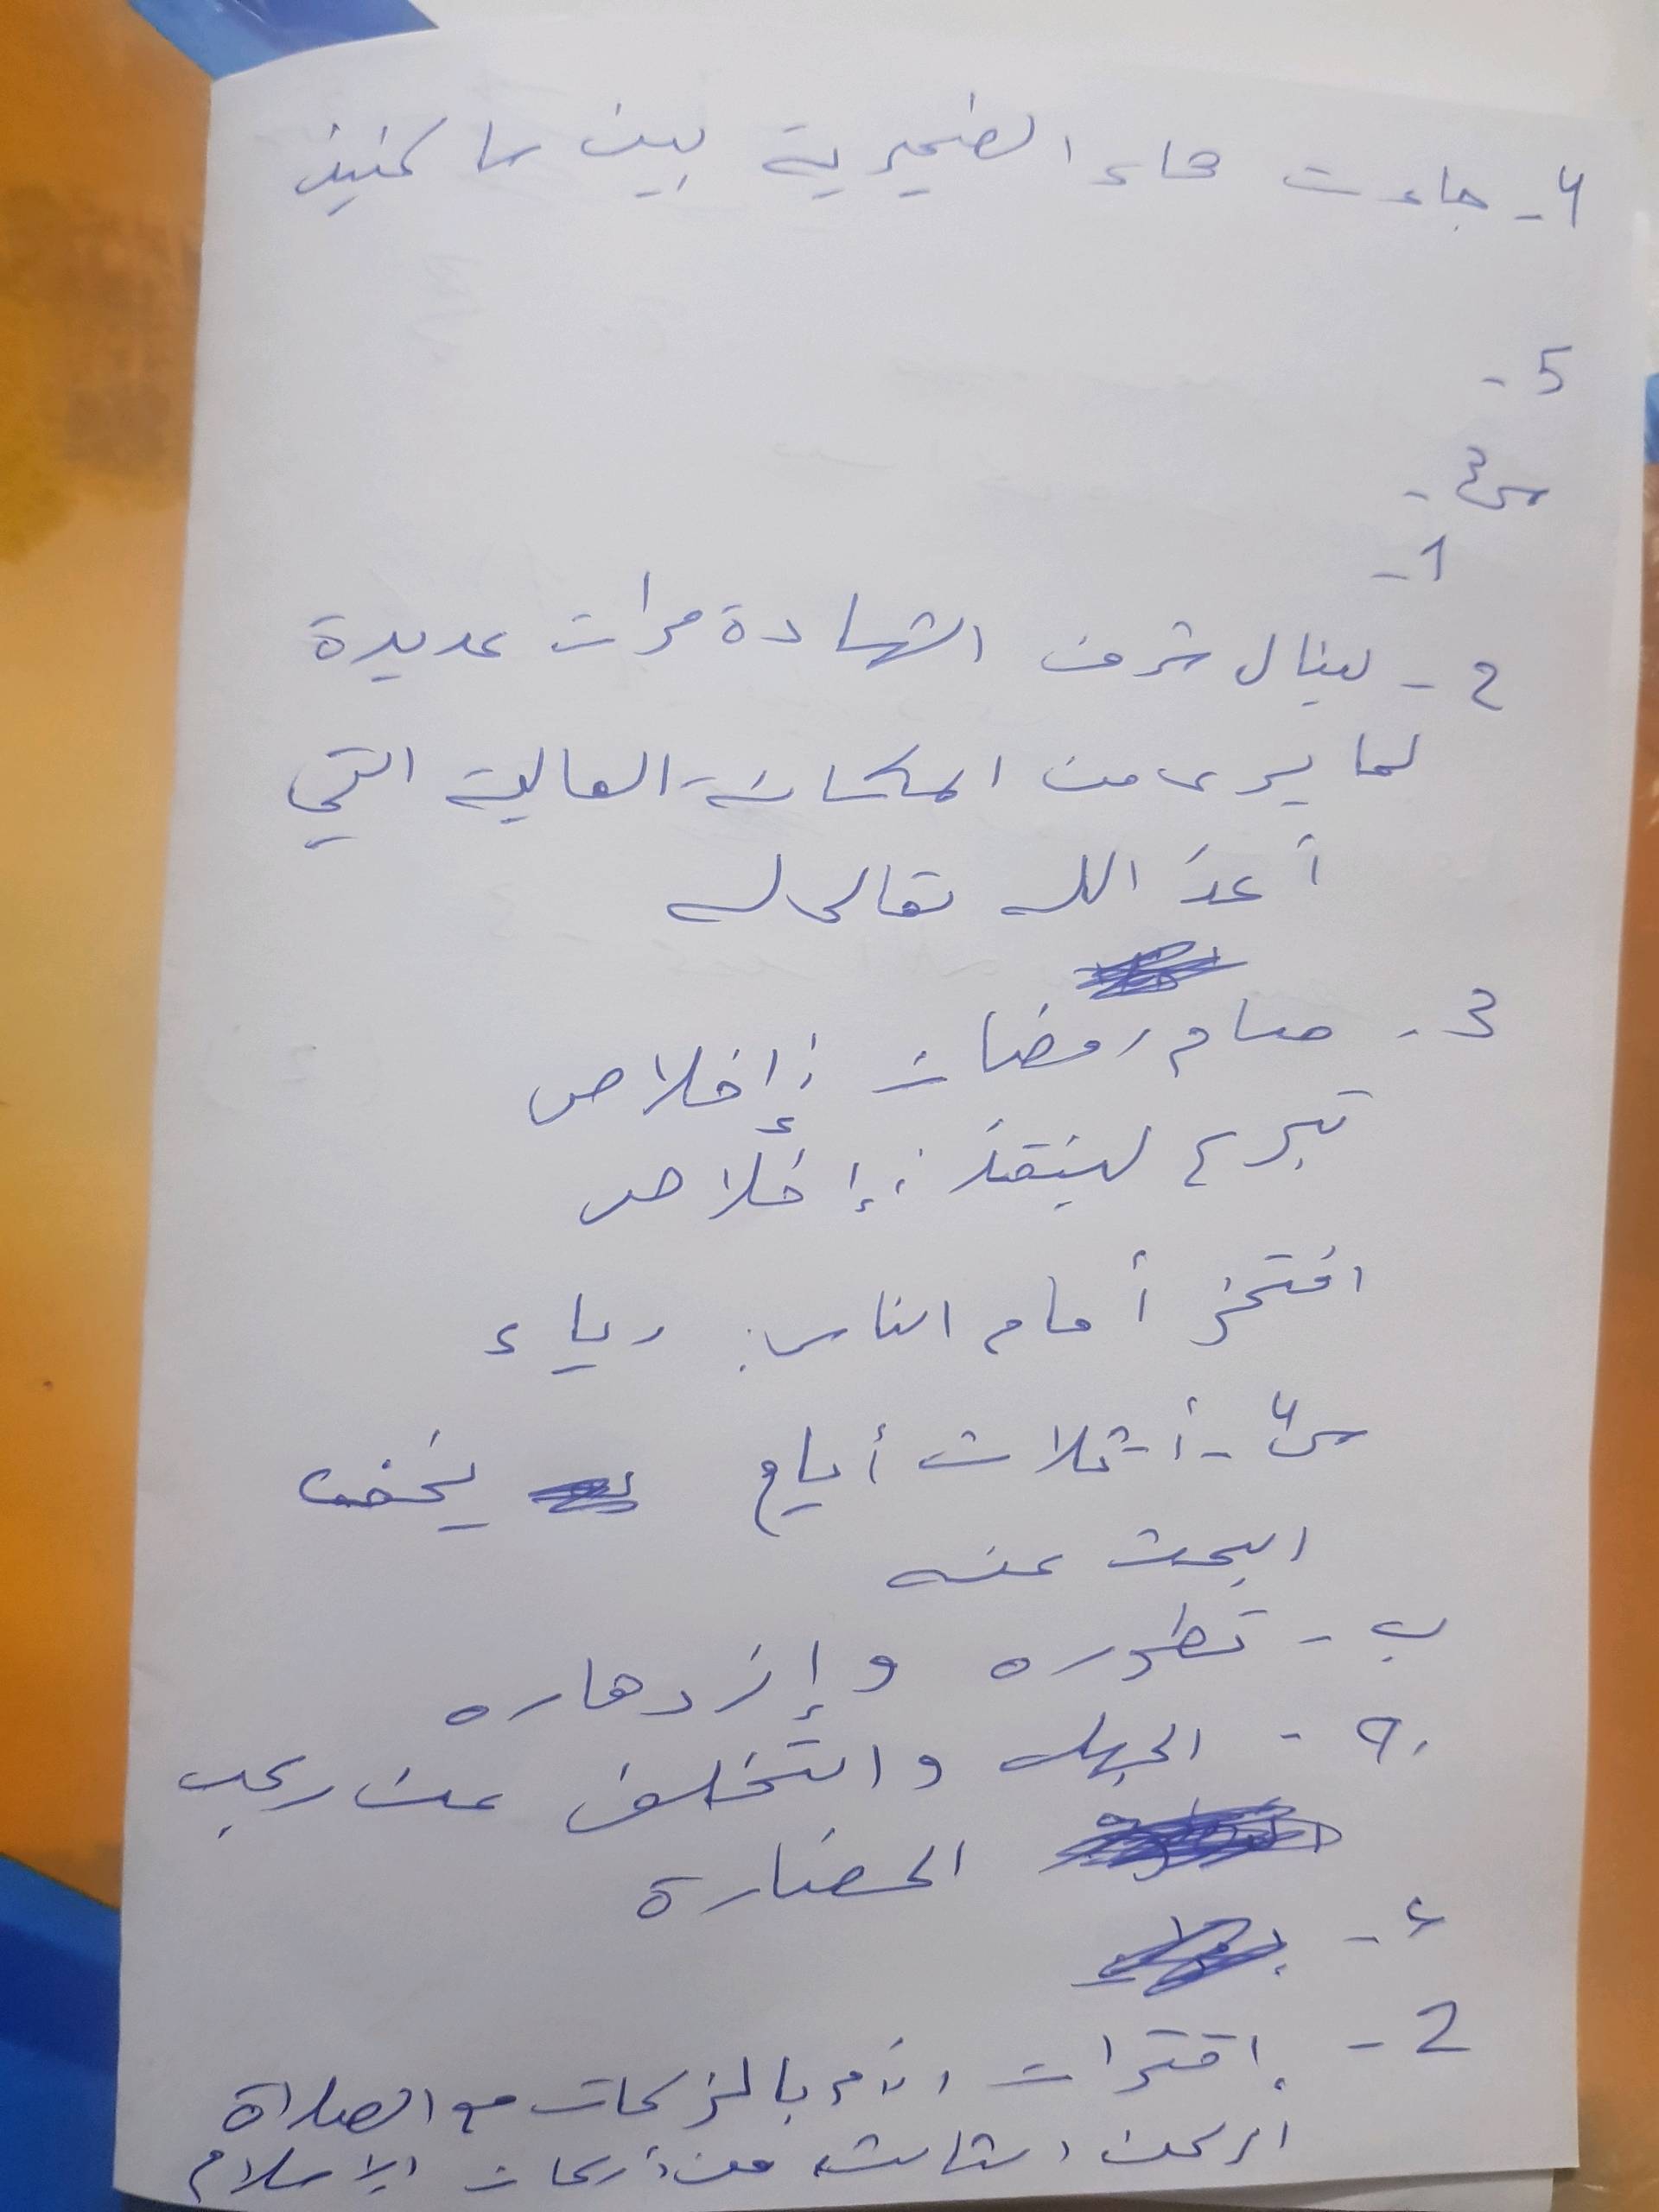 4- جاءت هاء الضميرية بين ساكنين
5-
س3-
1-
2- لينال شرف الشهادة مرات عديدة
لما يرى من المكانة العالية التي
أعدَ الله تعالى له
3- صام رمضان : إخلاص
تبرع لينقذ : إخلاص
افتخر أمام الناس: رياء
س4- أ- ثلاث أيام يخفف
البحث عنه
ب- تطوره وإزدهاره
ج- الجهل والتخلف عن ركب
الحضارة
2- إقتران الأمر بالزكات مع الصلاة
الركن الثالث من أركان الإسلام